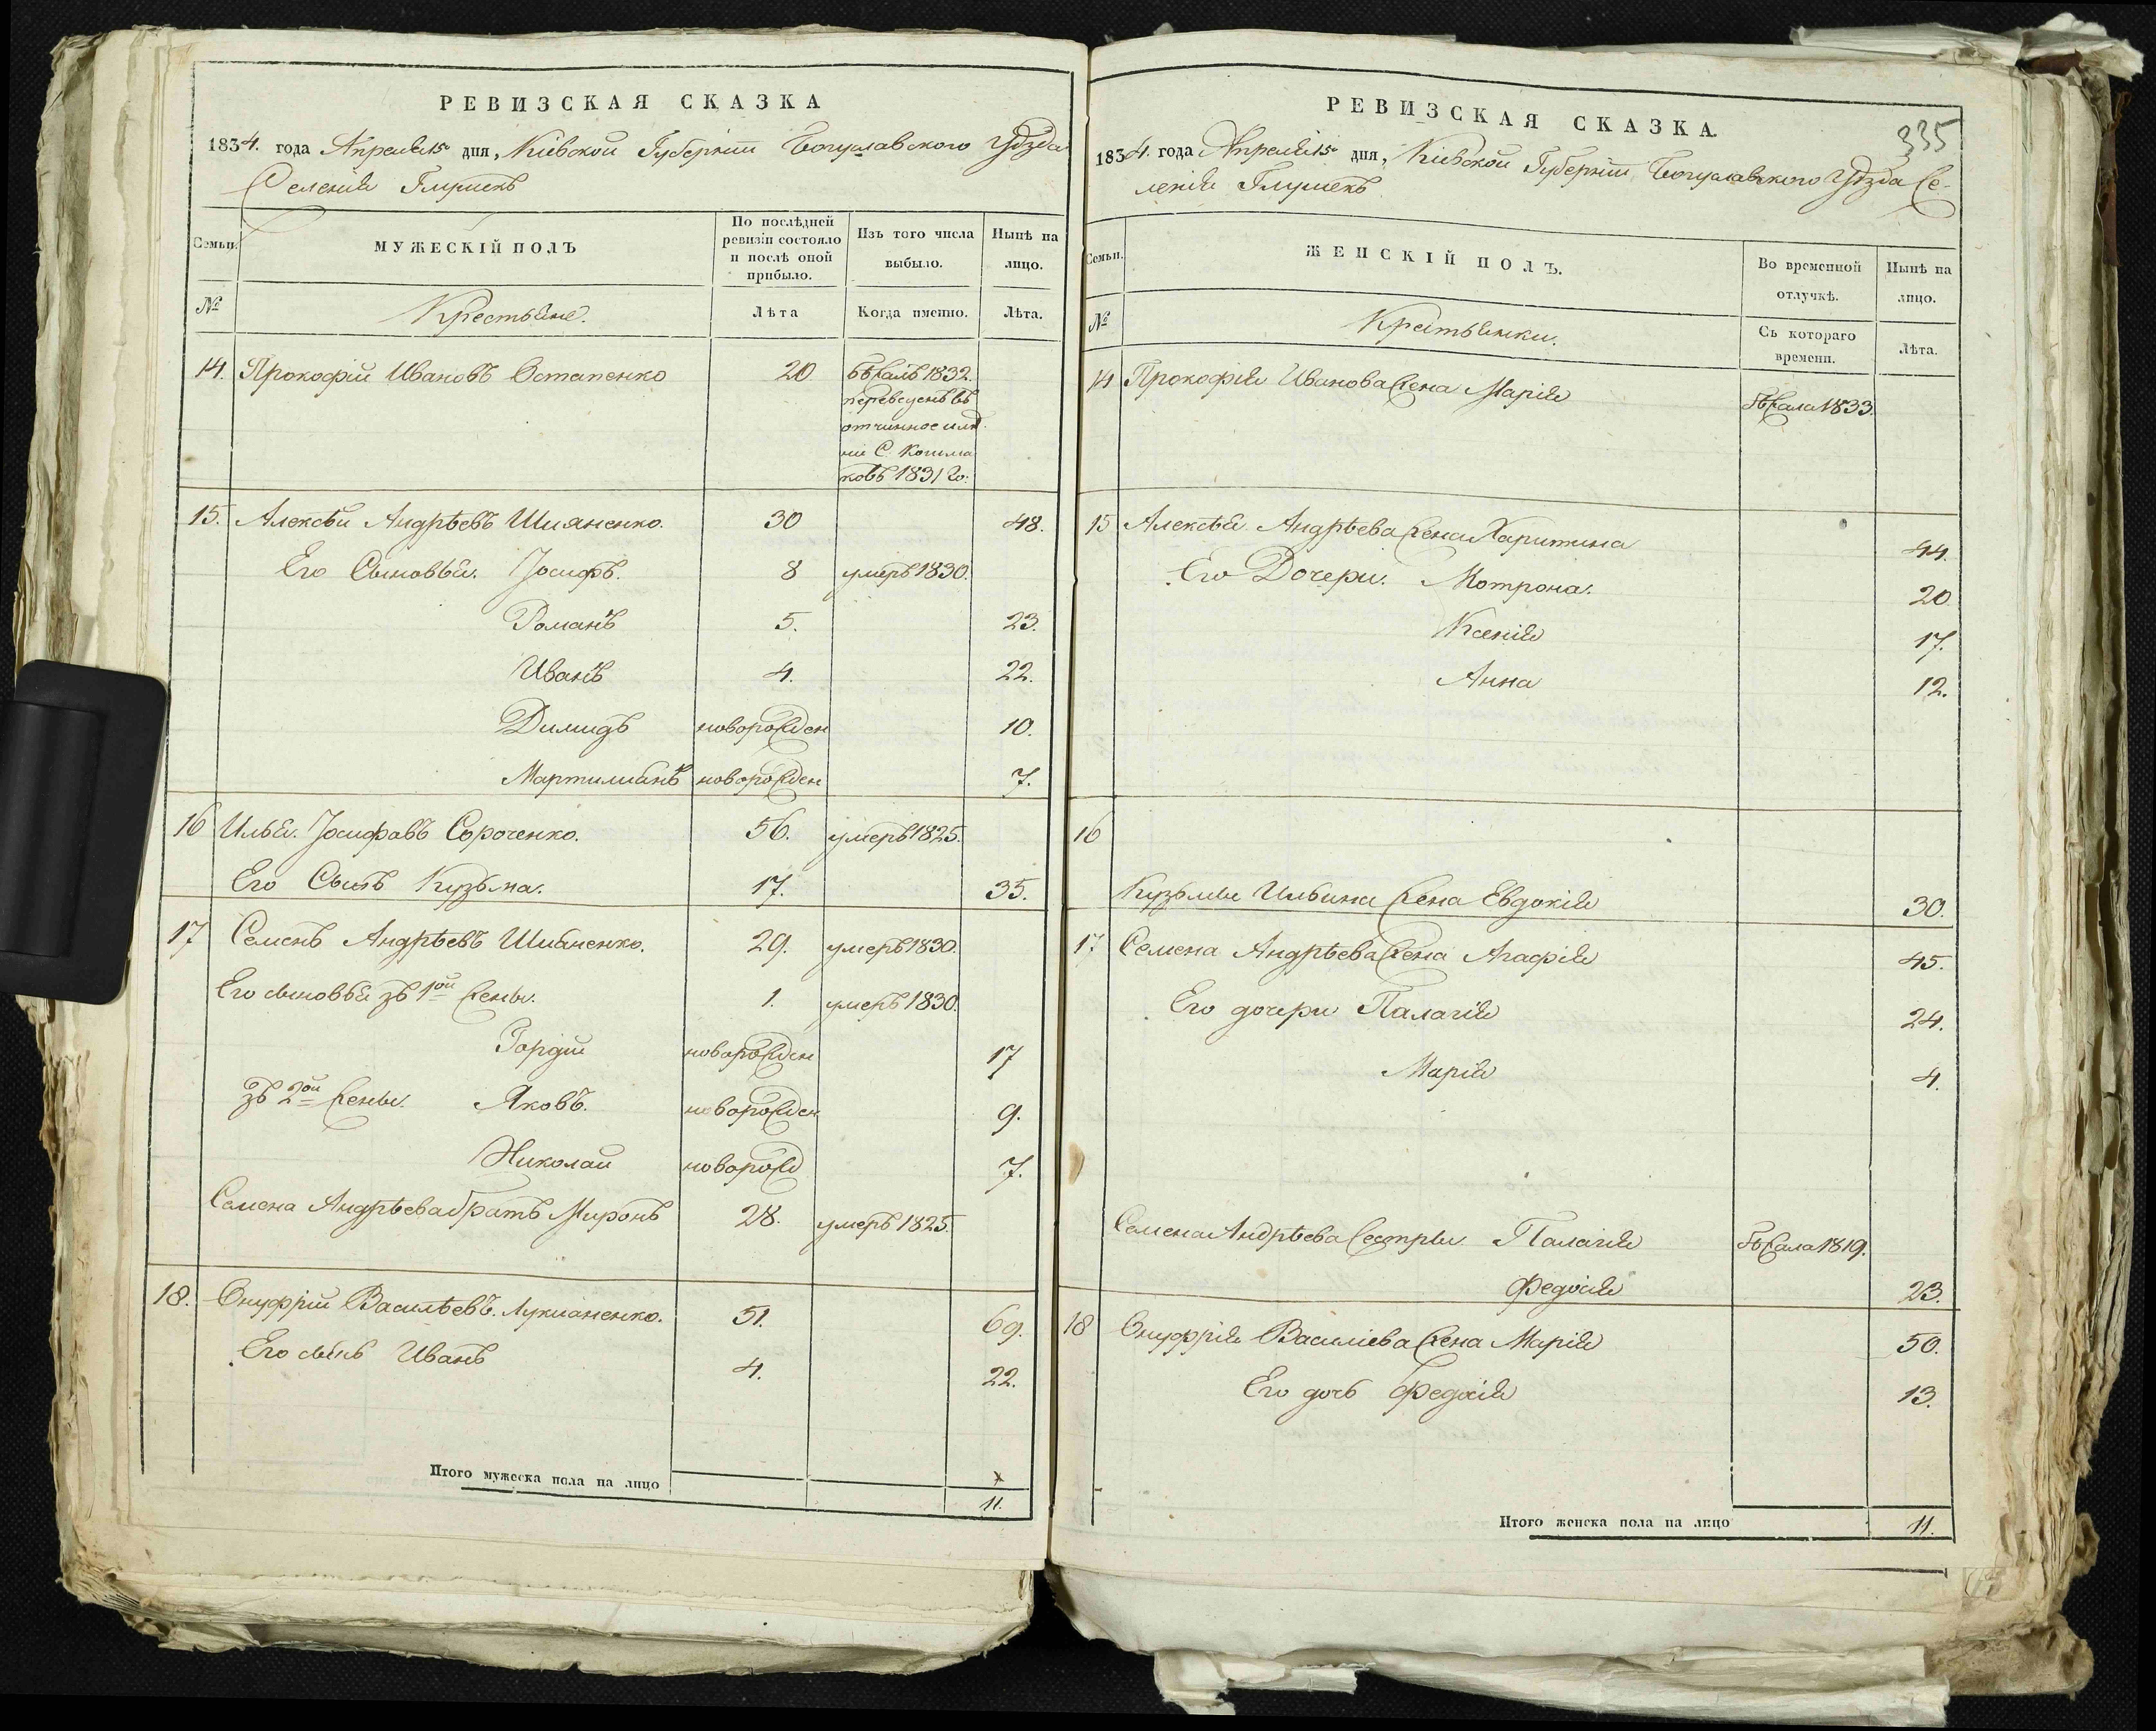 РЕВИЗСКАЯ СКАЗКА
1834. года Апреля 15го дня, Кіевской Губерніи Богуславского Уѣзда
Селенія Глушекъ
Семьи.
МУЖЕСКІЙ ПОЛЪ
По послѣдней ревизіи состояло и послѣ оной прибыло.
Изъ того числа выбыло.
Нынѣ на лицо.
№
Крестьяне.
Лѣта
Когда именно.
Лѣта.
14. Прокофій Ивановъ Остапенко 20 бѣжалъ 1832.
переведенъ въ
отчинное имѣ
ніе С. Кошма
ковъ 1831 го:
15. Алексѣй Андрѣевъ Шияненко. 30 48.
Его Сыновья. Іосифъ. 8 умеръ 1830.
Романъ 5. 23.
Иванъ 4. 22.
Димидъ новорожден 10.
Мартимианъ новорожден 7.
16 Илья. Іосифовъ Сороченко. 56. умеръ 1825.
Его Сынъ Кузьма. 17. 35.
17 Семенъ Андрѣевъ Шияненко. 29. умеръ 1830.
Его сыновья зъ 1ой жены. 1. умеръ 1830.
Гордій новорожден 17
зъ 2ой жены. Яковъ. новорожден 9.
Николай новорожд 7.
Семена Андрѣева братъ Миронъ 28. умеръ 1825.
18. Онуфрій Василѣевъ. Лукианенко. 51. 69.
Его сынъ Иванъ 4. 22.
Итого мужеска пола на лицо 11.
РЕВИЗСКАЯ СКАЗКА.
335
1834. года Апреля 15го дня, Кіевской Губерніи Богуславского Уѣзда Се-
ленія Глушекъ
Семьи.
ЖЕНСКІЙ ПОЛЪ.
Во временной отлучкѣ.
Нынѣ на лицо.
№
Крестьянки.
Съ котораго времени.
Лѣта.
14 Прокофія Иванова Жена Марія бѣжала 1833.
15 Алексѣя. Андрѣева Жена Харитина 44.
Его Дочери. Мотрона. 20
Ксенія 17.
Анна 12.
16
Кузьмы Ильина Жена Евдокія 30.
17 Семена Андрѣева Жена Агафія 45.
Его дочери Палагія 24.
Марія 4.
Семена Андрѣева Сестры Палагія бѣжала 1819.
Федосія 23.
18 Онуфрія Василіева Жена Марія 50.
Его дочь Федосія 13.
Итого женска пола на лицо 11.